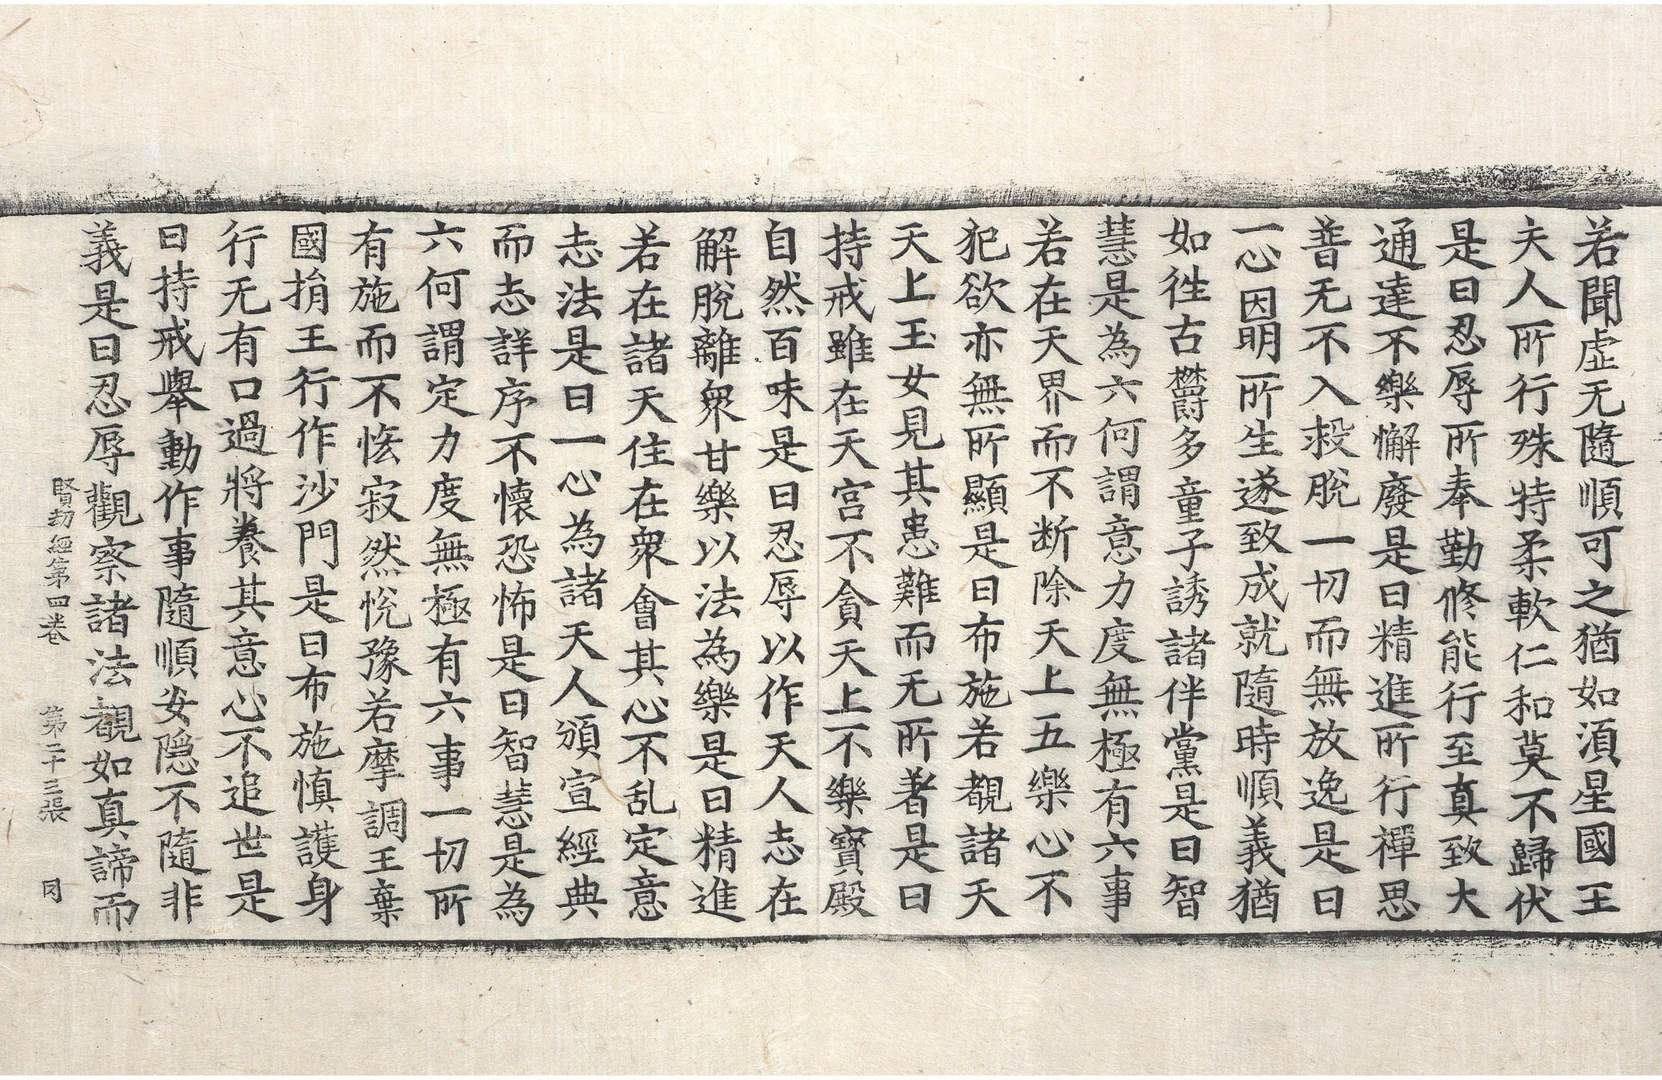 若聞虛无隨順可之猶如湏星國王
夫人所行殊特柔軟仁和莫不歸伏
是曰忍辱所奉勤修能行至真致大
通達不樂懈廢是曰精進所行禪思
普无不入救脫一切而無放逸是曰
一心因明所生遂致成就隨時順義猶
如徃古欝多童子誘諸伴黨是曰智
慧是為六何謂意力度無極有六事
若在天界而不断除天上五樂心不
犯欲亦無所顯是曰布施若覩諸天
天上玉女見其患難而无所著是曰
持戒雖在天宮不貪天上不樂寶殿
自然百味是曰忍辱以作天人志在
解脫離衆甘樂以法為樂是曰精進
若在諸天住在衆會其心不乱定意
志法是曰一心為諸天人頒宣經典
而志詳序不懷恐怖是曰智慧是為
六何謂定力度無極有六事一切所
有施而不恡寂然悅豫若摩調王棄
國捐王行作沙門是曰布施慎護身
行无有口過將養其意心不追世是
曰持戒舉動作事隨順安隱不隨非
義是曰忍辱觀察諸法覩如真諦而
賢劫經第四卷 第二十三張 同